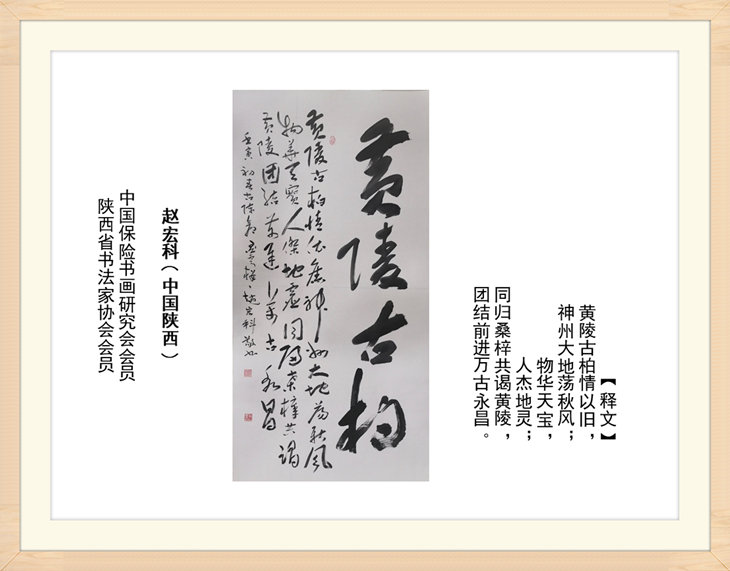 【释文】
黄陵古柏情以旧，
神州大地荡秋风；
物华天宝，
人杰地灵；
同归桑梓共谒黄陵，
团结前进万古永昌。
黄陵古柏
黄陵古柏情以旧神州大地荡秋风
物华天宝人杰地灵同归桑梓共谒
黄陵团结前进万古永昌
壬寅初春古陈赵宏科敬书
赵宏科（中国陕西）
中国保险书画研究会会员
陕西省书法家协会会员